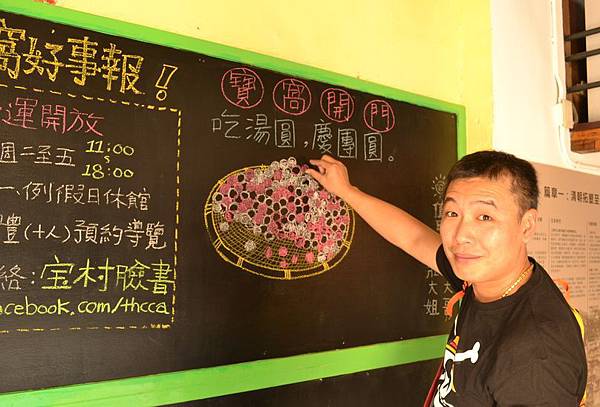 窩好事報！
運開放
週二至五 11:00
~
18:00
一、例假日休館
豐(十人)預約導覽
絡：宝村臉書
acebook.com/thcca
寶窩開門
吃湯圓，慶團圓。
大姐
大哥
篇章一：清朝拓墾至